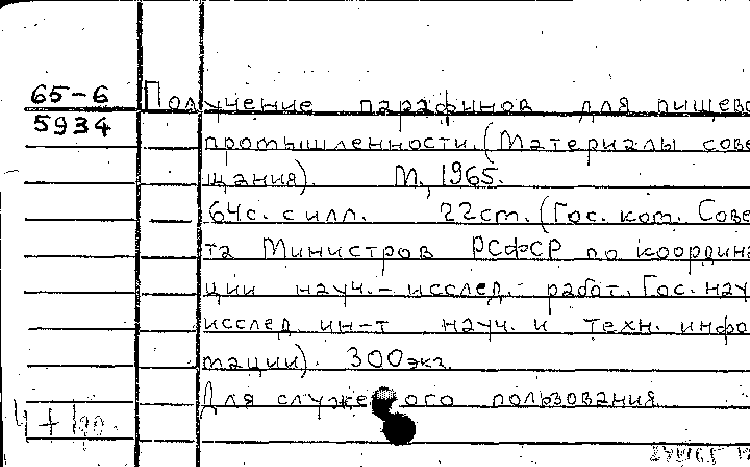 65-6
5934
Получение парафинов для пищево
промышленности. (Материалы сове
щания). М., 1965.
64с. с илл. 22см. (Гос. ком. Сове
та Министров РСФСР по координа
ции науч.-исслед.- работ. Гос. нау
исслед ин-т науч. и техн. инфо
мации). 300экз.
Для служебного пользования